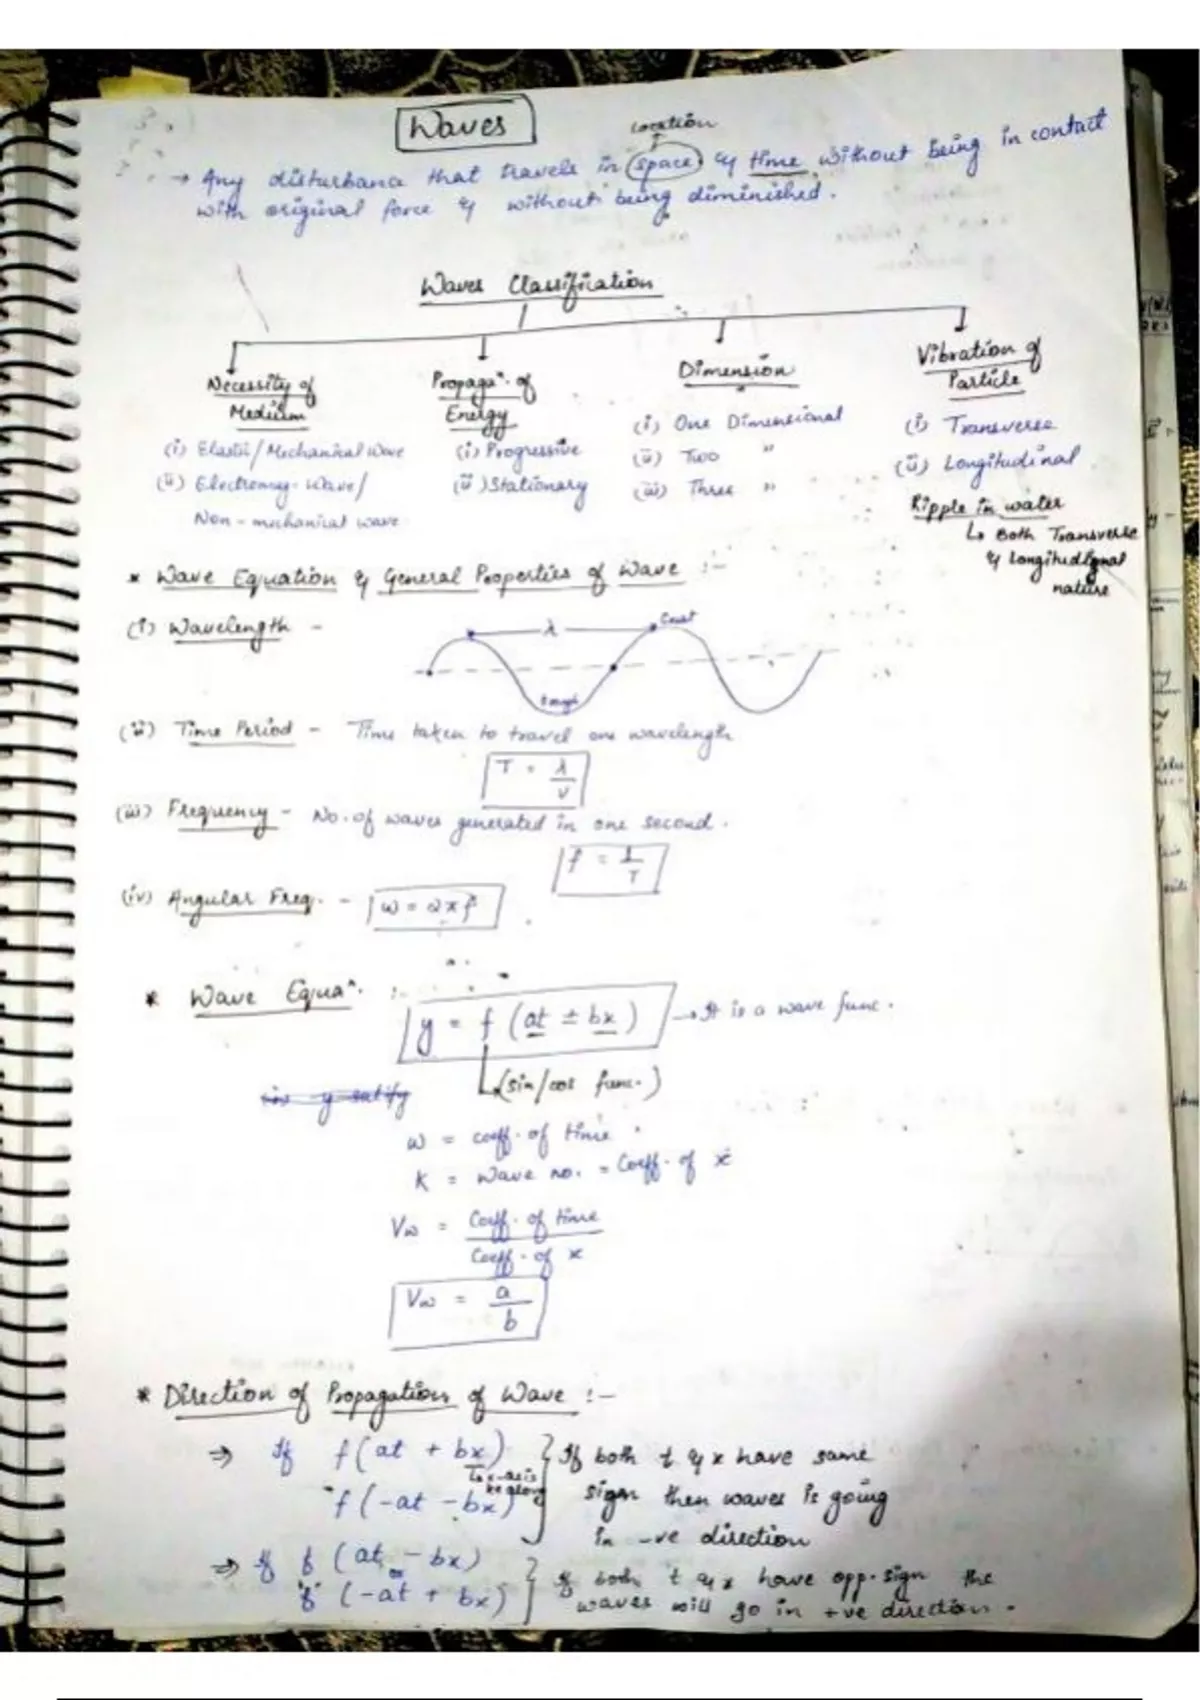 Waves
location
→ Any disturbance that travels in space & time without being in contact
with original force & without being diminished.
Waves Classification
Necessity of Medium
(i) Elastic/Mechanical wave
(ii) Electromag. wave/
Non-mechanical wave
Propagaⁿ. of Energy
(i) Progressive
(ii) Stationary
Dimension
(i) One Dimensional
(ii) Two "
(iii) Three "
Vibration of Particle
(i) Transverse
(ii) Longitudinal
Ripple in water
↳ Both Transverse
& longitudignal
nature
* Wave Equation & General Properties of Wave :-
(i) Wavelength -
λ
Crest
trough
(ii) Time Period - Time taken to travel one wavelength
T = λ/v
(iii) Frequency - No. of waves generated in one second.
f = 1/T
(iv) Angular Freq. - ω = 2πf
* Wave Equaⁿ. :-
y = f (at ± bx) → It is a wave func.
(sin/cos func.)
y satify
ω = coeff. of time
K = wave no. = Coeff. of x
Vω = Coeff. of time / Coeff. of x
Vω = a/b
* Direction of Propagation of Wave :-
⇒ If f(at + bx) } If both t & x have same
f(-at - bx) sign then waves is going
in -ve direction
⇒ If f (at - bx) } If both t & x have opp. sign the
or
f (-at + bx) waves will go in +ve direction.